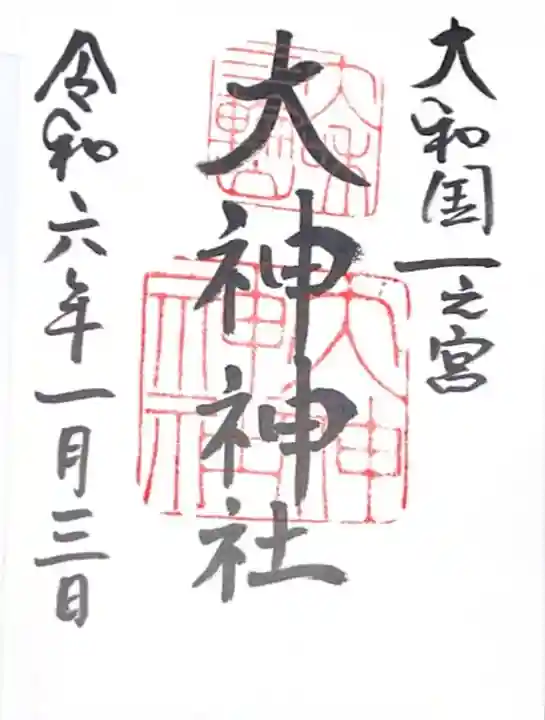 大和国一之宮
大神神社
令和六年一月三日
大神神社